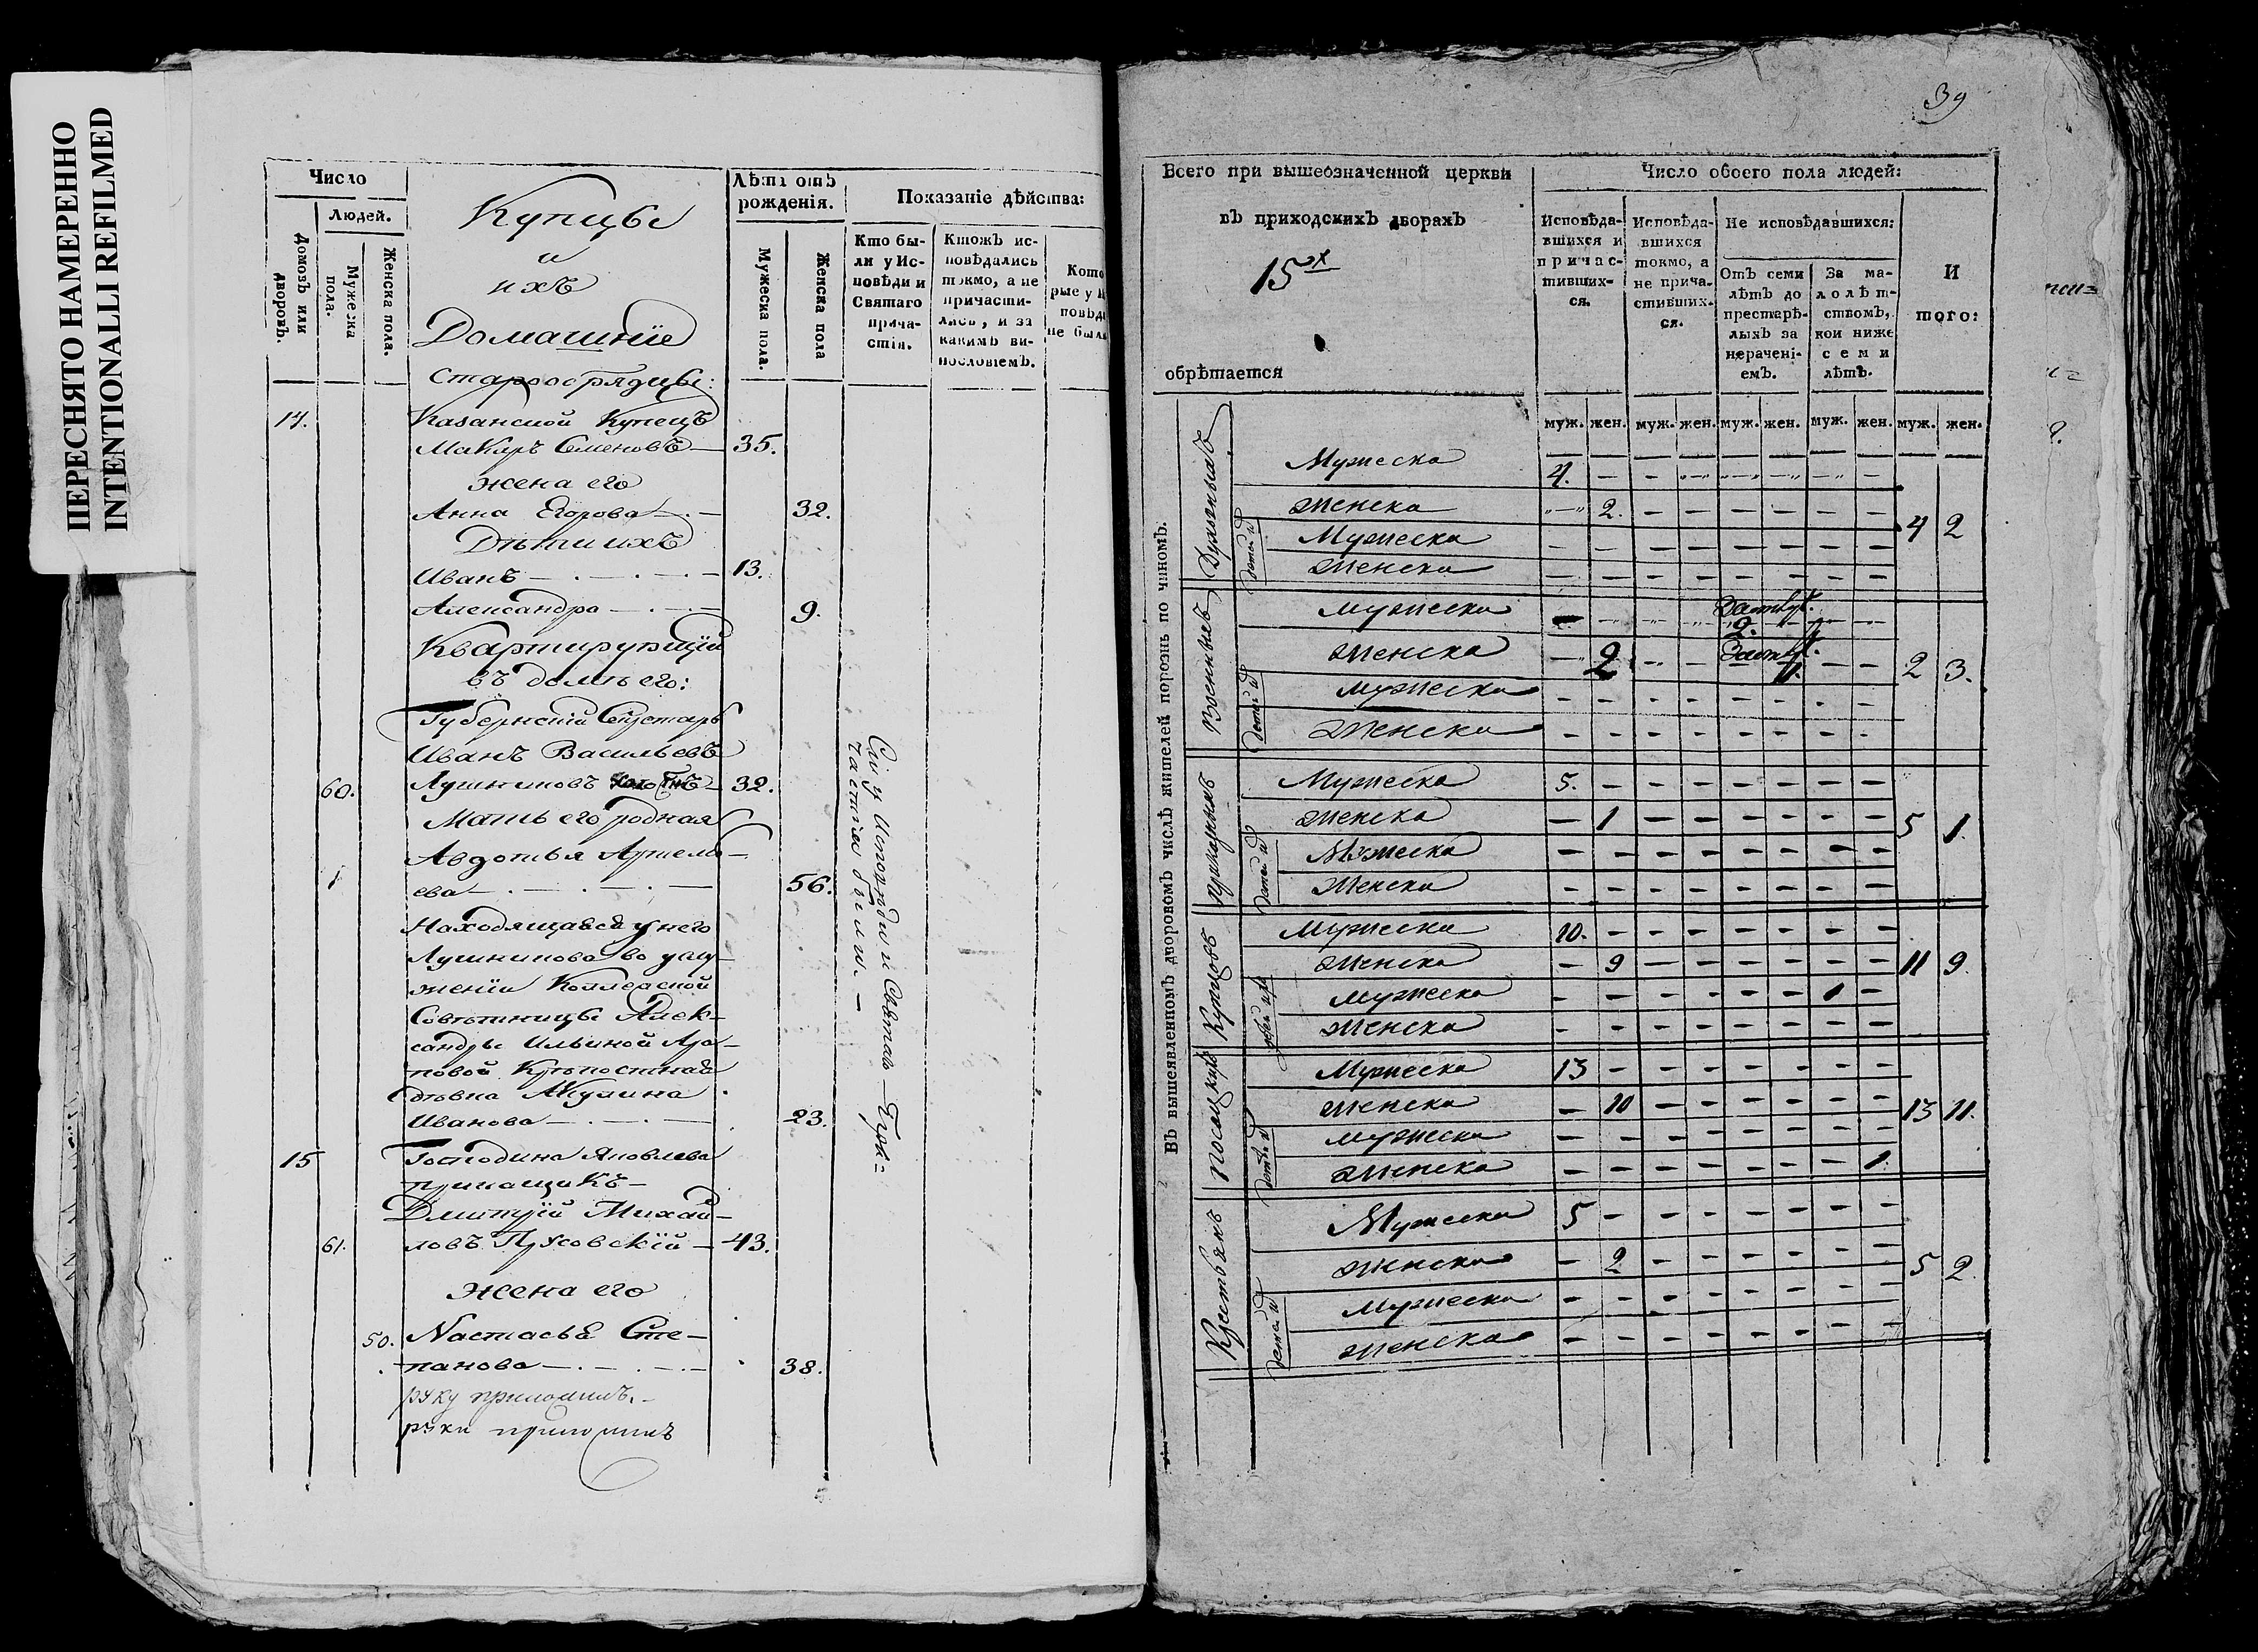 ПЕРЕСНЯТО НАМЕРЕННО
INTENTIONALLI REFILMED
Число
Людей.
Домовъ или дворовъ.
Мужеска пола.
Женска пола.
Купцы
и
ихъ
Домашнїе
Лѣта отъ рожденія.
Мужеска пола.
Женска пола
Показаніе дѣйства:
Кто были у Исповѣди и Святаго причастія.
Ктожъ исповѣдались токмо, а не причастились, и за какимъ винословіемъ.
Кото
рые у И
повѣд
не были
Старообрядцы:
14. Казанской Купецъ
Макаръ Семеновъ — 35.
жена его
Анна Егорова — 32.
Дѣти ихъ
Иванъ — 13.
Александра — 9.
Квартирующїй
въ домѣ его:
Губернскій Секретарь
Иванъ Васильевъ
60. Лушниковъ — 32.
Мать его родная
Авдотья Артемь-
1 ева — 56.
Находящаяся у него
Лушникова во услу-
женіи Коллежской
Совѣтницы Алек-
сандры Ильиной Ара-
повой Крѣпостная
дѣвка Акулина
Иванова — 23.
15 Господина Яковлева
прикащикъ —
Дмитрїй Михай-
61. ловъ — 43.
жена его
50. Настасья Сте-
панова — 38.
руку приложилъ. —
руки приложилъ
Сіи у Исповѣди и Святаго — При=
частія были. —
39
Всего при вышеозначенной церкви
въ приходскихъ дворахъ
15ᵡ
обрѣтается
Число обоего пола людей:
Исповѣдавшихся и причастившихся.
Исповѣдавшихся токмо, а не причастившихся.
Не исповѣдавшихся:
Отъ семи лѣтъ до престарѣлыхъ за нерачені-емъ.
За малолѣтствомъ, кои ниже семи лѣтъ.
И того:
муж. жен. муж. жен. муж. жен. муж. жен. муж. жен.
Въ вышеявленномъ дворовомъ числѣ жителей порознь по чиномъ.
Духовныхъ
Мужеска 4. — — — — — — —
Женска — 2. — — — — — — 4 2
дѣтей их
Мужеска — — — — — — — —
Женска — — — — — — — —
Военныхъ
Мужеска — — — — 2. — — —
Женска — 2 — — — 1. — — 2 3.
дѣтей их
Мужеска — — — — — — — —
Женска — — — — — — — —
Приказныхъ
Мужеска 5. — — — — — — —
Женска — 1 — — — — — — 5 1.
дѣтей их
Мужеска — — — — — — — —
Женска — — — — — — — —
Купцовъ
Мужеска 10. — — — — — — —
Женска — 9 — — — — — — 11 9.
дѣтей их
Мужеска — — — — — — 1 —
Женска — — — — — — — —
Посацкихъ
Мужеска 13 — — — — — — —
Женска — 10 — — — — — — 13 11.
дѣтей их
Мужеска — — — — — — — —
Женска — — — — — — — 1.
Крестьянъ
Мужеска 5 — — — — — — —
Женска — 2 — — — — — — 5 2
дѣтей их
Мужеска — — — — — — — —
Женска — — — — — — — —